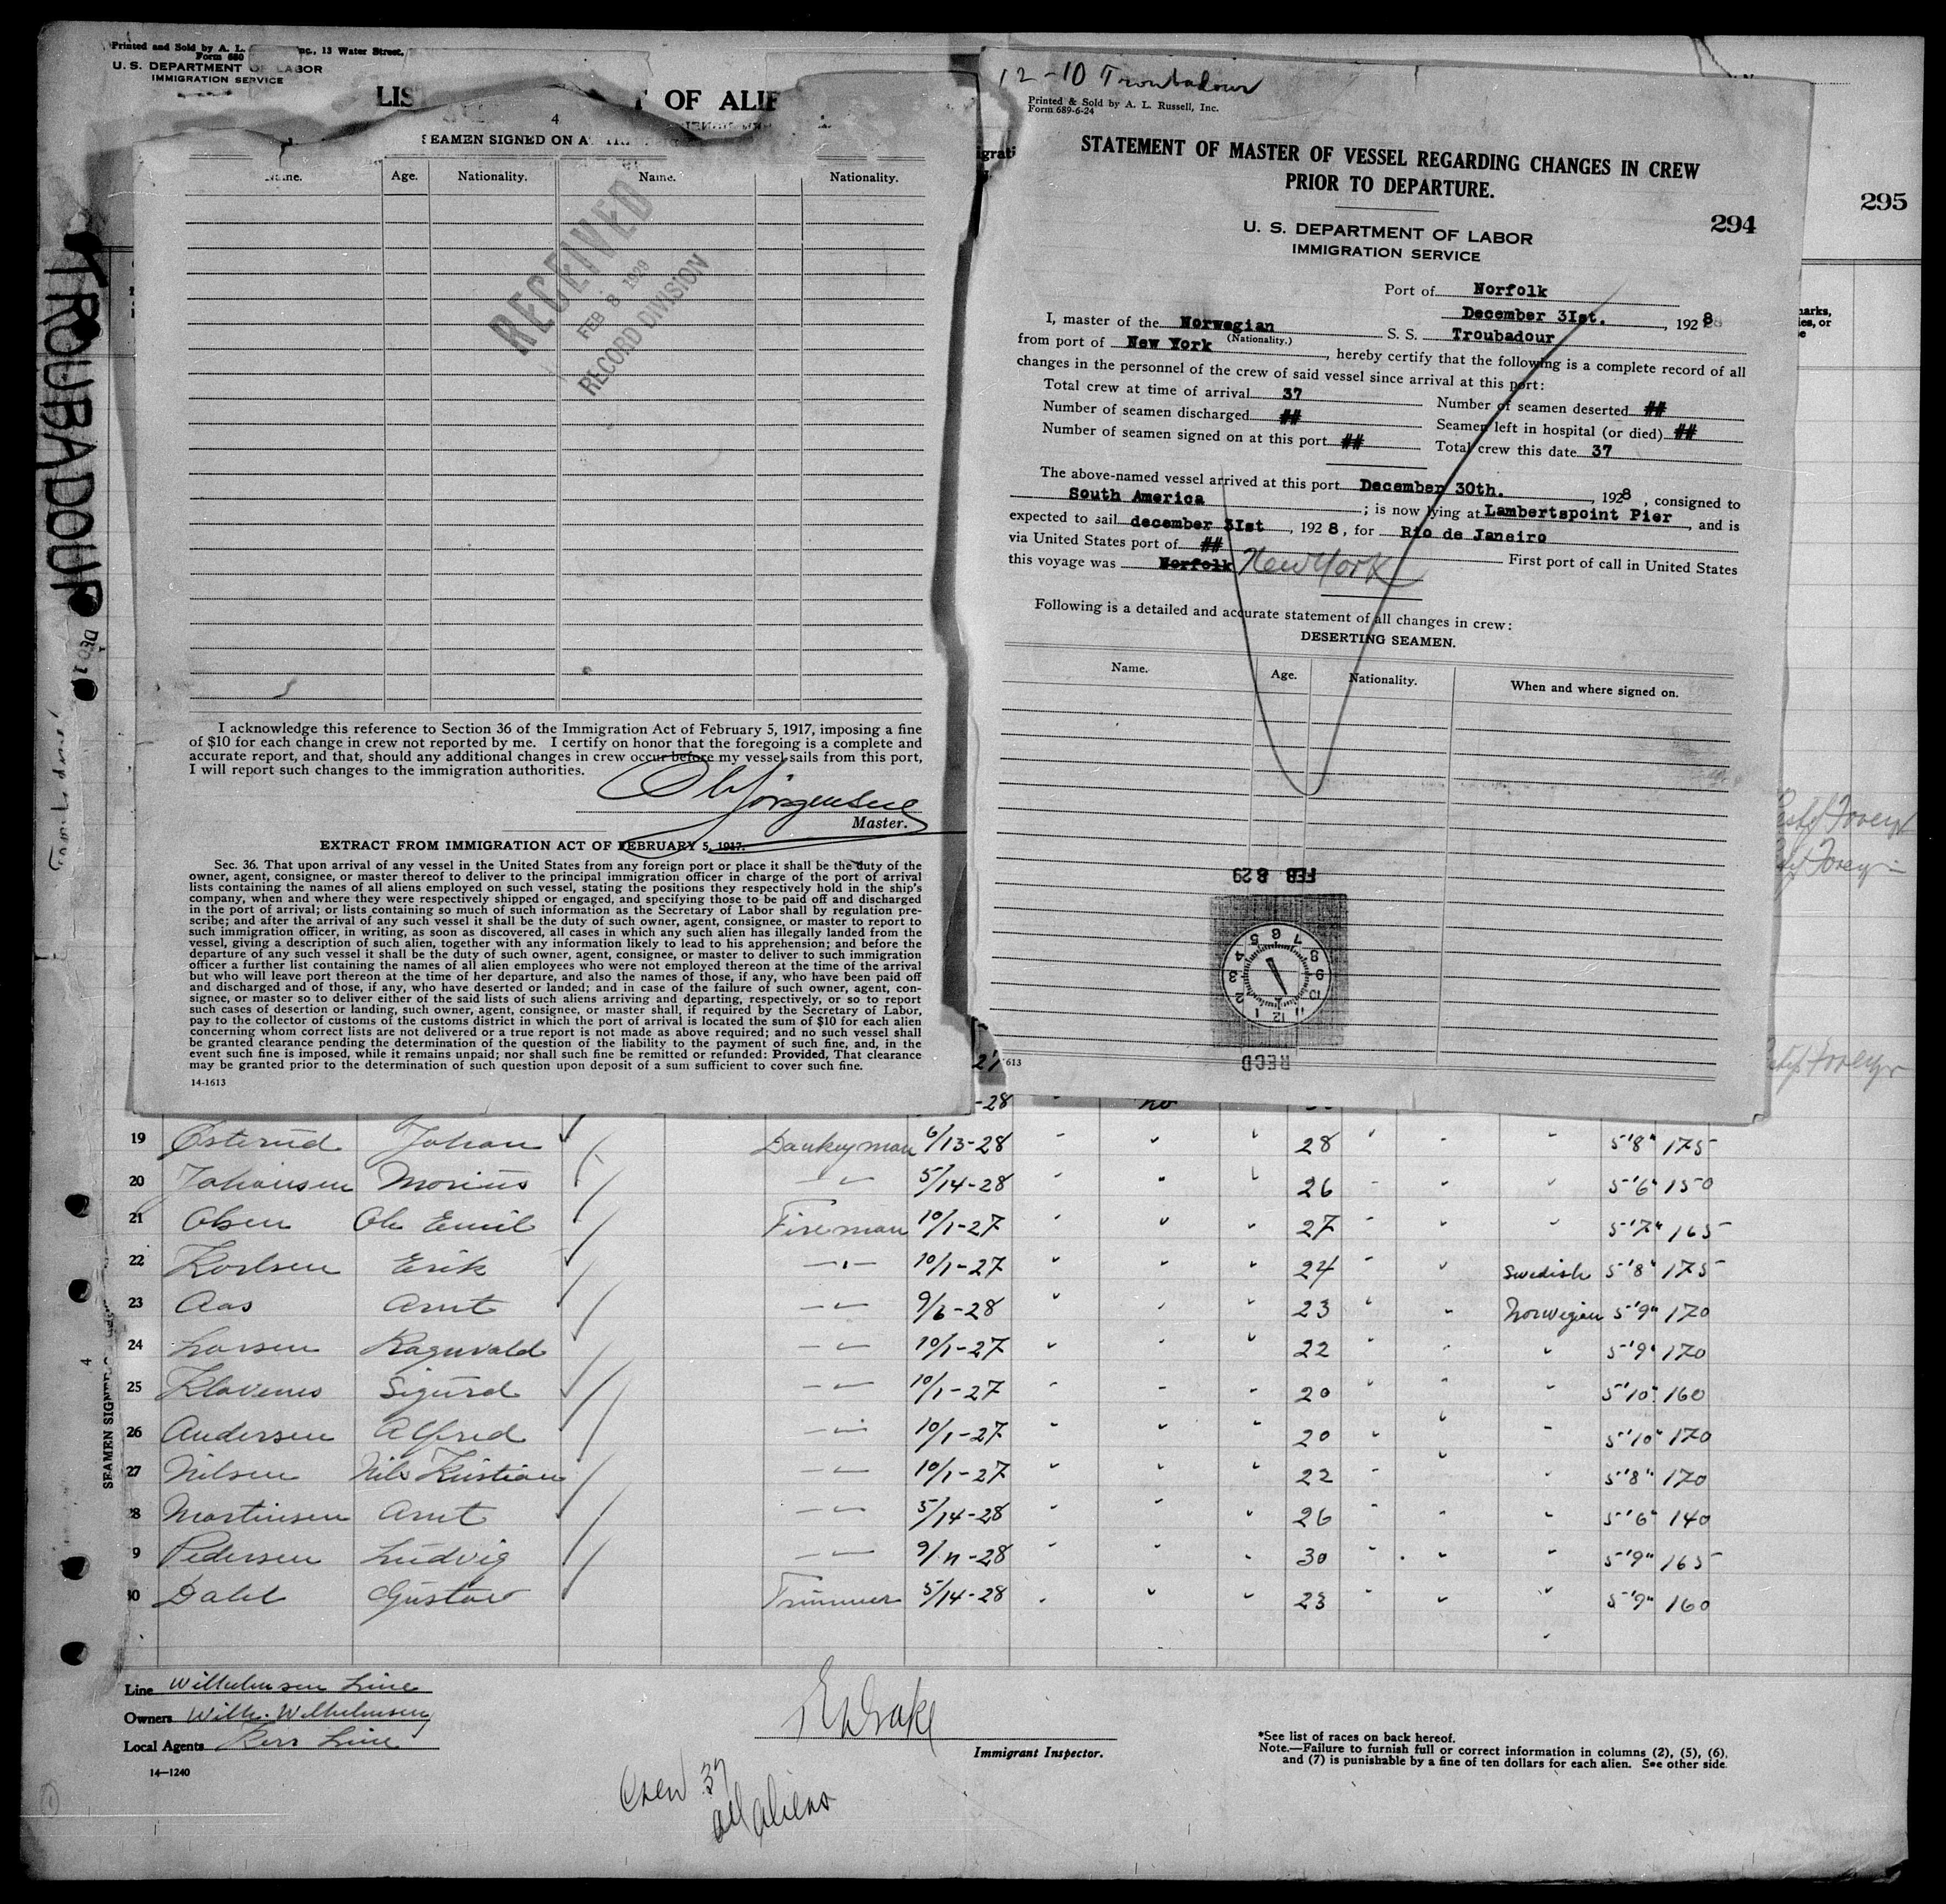 Printed and Sold by A. L. Inc., 13 Water Street.
Form 680
U. S. DEPARTMENT OF LABOR
IMMIGRATION SERVICE
LIS T OF ALIE
4
SEAMEN SIGNED ON A
Name. Age. Nationality. Name. Nationality.
RECEIVED
FEB 8 1929
RECORD DIVISION
I acknowledge this reference to Section 36 of the Immigration Act of February 5, 1917, imposing a fine
of $10 for each change in crew not reported by me. I certify on honor that the foregoing is a complete and
accurate report, and that, should any additional changes in crew occur before my vessel sails from this port,
I will report such changes to the immigration authorities.
Master.
EXTRACT FROM IMMIGRATION ACT OF FEBRUARY 5, 1917.
Sec. 36. That upon arrival of any vessel in the United States from any foreign port or place it shall be the duty of the
owner, agent, consignee, or master thereof to deliver to the principal immigration officer in charge of the port of arrival
lists containing the names of all aliens employed on such vessel, stating the positions they respectively hold in the ship's
company, when and where they were respectively shipped or engaged, and specifying those to be paid off and discharged
in the port of arrival; or lists containing so much of such information as the Secretary of Labor shall by regulation pre-
scribe; and after the arrival of any such vessel it shall be the duty of such owner, agent, consignee, or master to report to
such immigration officer, in writing, as soon as discovered, all cases in which any such alien has illegally landed from the
vessel, giving a description of such alien, together with any information likely to lead to his apprehension; and before the
departure of any such vessel it shall be the duty of such owner, agent, consignee, or master to deliver to such immigration
officer a further list containing the names of all alien employees who were not employed thereon at the time of the arrival
but who will leave port thereon at the time of her departure, and also the names of those, if any, who have been paid off
and discharged and of those, if any, who have deserted or landed; and in case of the failure of such owner, agent, con-
signee, or master so to deliver either of the said lists of such aliens arriving and departing, respectively, or so to report
such cases of desertion or landing, such owner, agent, consignee, or master shall, if required by the Secretary of Labor,
pay to the collector of customs of the customs district in which the port of arrival is located the sum of $10 for each alien
concerning whom correct lists are not delivered or a true report is not made as above required; and no such vessel shall
be granted clearance pending the determination of the question of the liability to the payment of such fine, and, in the
event such fine is imposed, while it remains unpaid; nor shall such fine be remitted or refunded: Provided, That clearance
may be granted prior to the determination of such question upon deposit of a sum sufficient to cover such fine.
14-1613
TROUBADOUR
12-10 Troubadour
Printed & Sold by A. L. Russell, Inc.
Form 689-6-24
STATEMENT OF MASTER OF VESSEL REGARDING CHANGES IN CREW
PRIOR TO DEPARTURE.
294
295
U. S. DEPARTMENT OF LABOR
IMMIGRATION SERVICE
Port of Norfolk
December 3Ist. , 1928
I, master of the Norwegian S. S. Troubadour
(Nationality.)
from port of New York , hereby certify that the following is a complete record of all
changes in the personnel of the crew of said vessel since arrival at this port:
Total crew at time of arrival 37 Number of seamen deserted ##
Number of seamen discharged ## Seamen left in hospital (or died) ##
Number of seamen signed on at this port ## Total crew this date 37
The above-named vessel arrived at this port December 30th. , 1928 , consigned to
South America ; is now lying at Lambertspoint Pier , and is
expected to sail december 3Ist , 1928 , for Rio de Janeiro
via United States port of ## First port of call in United States
this voyage was Norfolk New York
Following is a detailed and accurate statement of all changes in crew:
DESERTING SEAMEN.
Name. Age. Nationality. When and where signed on.
FEB 8 29
REC'D
613
19 Østerud Johan Dankeyman 6/13-28 28 5'8" 175
20 Johansen Morius 5/14-28 26 5'6" 150
21 Olsen Ole Emil Fireman 10/1-27 27 5'7" 165
22 Korlsen Erik 10/1-27 24 Swedish 5'8" 175
23 Aas Arnt 9/6-28 23 Norwegian 5'9" 170
24 Larsen Ragnvald 10/1-27 22 5'9" 170
25 Klavenes Sigurd 10/1-27 20 5'10" 160
26 Andersen Alfred 10/1-27 20 5'10" 170
27 Nilsen Nils Kristian 10/1-27 22 5'8" 170
28 Martinsen Arnt 5/14-28 26 5'6" 140
9 Pedersen Ludvig 9/11-28 30 5'9" 165
30 Dahl Gustav Trimmer 5/14-28 23 5'9" 160
Line Wilhelmsen Line
Owners Wilh. Wilhelmsen
Local Agents Kerr Line
14-1240
Immigrant Inspector.
Crew 37
all aliens
*See list of races on back hereof.
Note.—Failure to furnish full or correct information in columns (2), (5), (6),
and (7) is punishable by a fine of ten dollars for each alien. See other side.